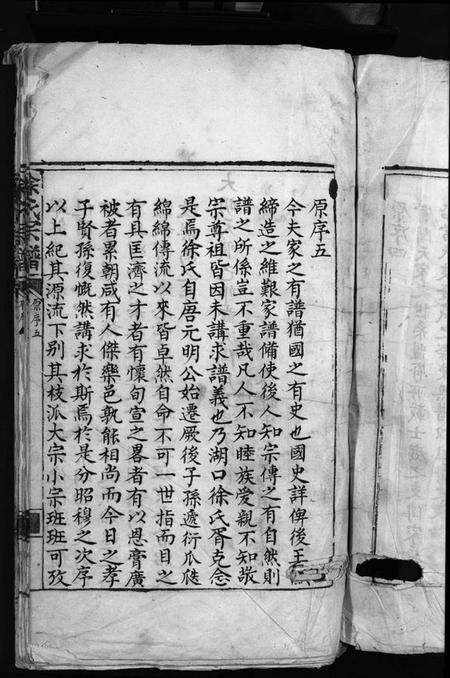 原序五
今夫家之有譜猶國之有史也國史詳俾後王
締造之維艱家譜備使後人知宗傳之有自然則
譜之所係豈不重哉凡人不知睦族愛親不知敬
宗尊祖皆因未講求譜義也乃湖口徐氏胥克念
是焉徐氏自唐元明公始遷厥後子孫遞衍瓜瓞
綿綿傳流以來皆卓然自命不可一世指而目之
有具匡濟之才者有懷旬宣之畧者有以恩膏廣
被者累朝咸有人傑樂邑孰能相尚而今日之孝
子賢孫復慨然講求於斯焉於是分昭穆之次序
以上紀其源流下別其枝派大宗小宗班班可攷
徐氏宗譜
原序五